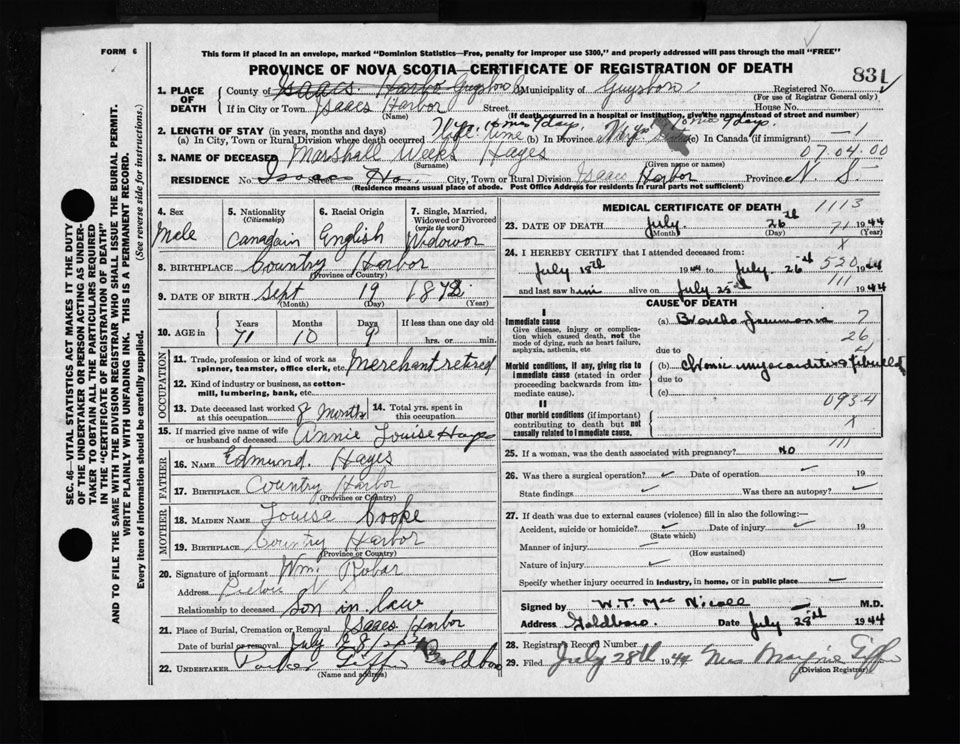 FORM 6
This form if placed in an envelope, marked "Dominion Statistics—Free, penalty for improper use $300," and properly addressed will pass through the mail "FREE"
PROVINCE OF NOVA SCOTIA—CERTIFICATE OF REGISTRATION OF DEATH
831
1. PLACE OF DEATH
County of Isaacs Harbor Guysboro Municipality of Guysboro Registered No.
(For use of Registrar General only)
If in City or Town Isaacs Harbor Street House No.
(Name) (If death occurred in a hospital or institution, give the name instead of street and number)
2. LENGTH OF STAY (in years, months and days)
(a) In City, Town or Rural Division where death occurred Life Time (b) In Province (c) In Canada (if immigrant)
3. NAME OF DECEASED Marshall Weeks Hayes
(Surname) (Given name or names)
07.04.00
RESIDENCE No. Isaacs Ho. Street City, Town or Rural Division Isaacs Harbor Province N. S.
(Residence means usual place of abode. Post Office Address for residents in rural parts not sufficient)
4. Sex
Male
5. Nationality
(Citizenship)
Canadain
6. Racial Origin
English
7. Single, Married, Widowed or Divorced
(write the word)
Widowor
8. BIRTHPLACE Country Harbor
(Province or Country)
9. DATE OF BIRTH Sept 19 1872
(Month) (Day) (Year)
10. AGE in
Years Months Days If less than one day old
71 10 9 hrs. or min.
OCCUPATION
11. Trade, profession or kind of work as spinner, teamster, office clerk, etc. Merchant retired
12. Kind of industry or business, as cotton-mill, lumbering, bank, etc.
13. Date deceased last worked at this occupation 8 Months
14. Total yrs. spent in this occupation
15. If married give name of wife or husband of deceased Annie Louise Hayes
FATHER
16. NAME Edmund. Hayes
17. BIRTHPLACE Country Harbor
(Province or Country)
MOTHER
18. MAIDEN NAME Louisa Cooke
19. BIRTHPLACE Country Harbor
(Province or Country)
20. Signature of informant Wm. Robar
Address
Relationship to deceased son in law
21. Place of Burial, Cremation or Removal Isaacs Harbor
Date of burial or removal July 28
22. UNDERTAKER Parker Giffin Goldboro
(Name and address)
MEDICAL CERTIFICATE OF DEATH
1113
23. DATE OF DEATH July 26th 1944
(Month) (Day) (Year)
71
24. I HEREBY CERTIFY that I attended deceased from:
X
July 18th 1944 to July 26th 1944
520
and last saw him alive on July 25th 1944
111
CAUSE OF DEATH
I
Immediate cause
Give disease, injury or complication which caused death, not the mode of dying, such as heart failure, asphyxia, asthenia, etc
(a) Broncho Pneumonia 7
26
due to
Morbid conditions, if any, giving rise to immediate cause (stated in order proceeding backwards from immediate cause).
(b) Chronic myocarditis & fibrillat
due to
(c)
II
Other morbid conditions (if important) contributing to death but not causally related to immediate cause.
0934
X
111
25. If a woman, was the death associated with pregnancy? NO
26. Was there a surgical operation? Date of operation 19
State findings Was there an autopsy?
27. If death was due to external causes (violence) fill in also the following:—
Accident, suicide or homicide? Date of injury 19
(State which)
Manner of injury
(How sustained)
Nature of injury
Specify whether injury occurred in industry, in home, or in public place
Signed by W. T. MacNicoll M.D.
Address Goldboro. Date July 28th 1944
28. Registration Record Number
29. Filed July 28th 1944 Mrs Marjorie Giffin
(Division Registrar)
SEC. 46—VITAL STATISTICS ACT MAKES IT THE DUTY
OF THE UNDERTAKER OR PERSON ACTING AS UNDER-
TAKER TO OBTAIN ALL THE PARTICULARS REQUIRED
IN THE "CERTIFICATE OF REGISTRATION OF DEATH"
AND TO FILE THE SAME WITH THE DIVISION REGISTRAR WHO SHALL ISSUE THE BURIAL PERMIT.
WRITE PLAINLY WITH UNFADING INK. THIS IS A PERMANENT RECORD.
Every item of information should be carefully supplied. (See reverse side for instructions.)